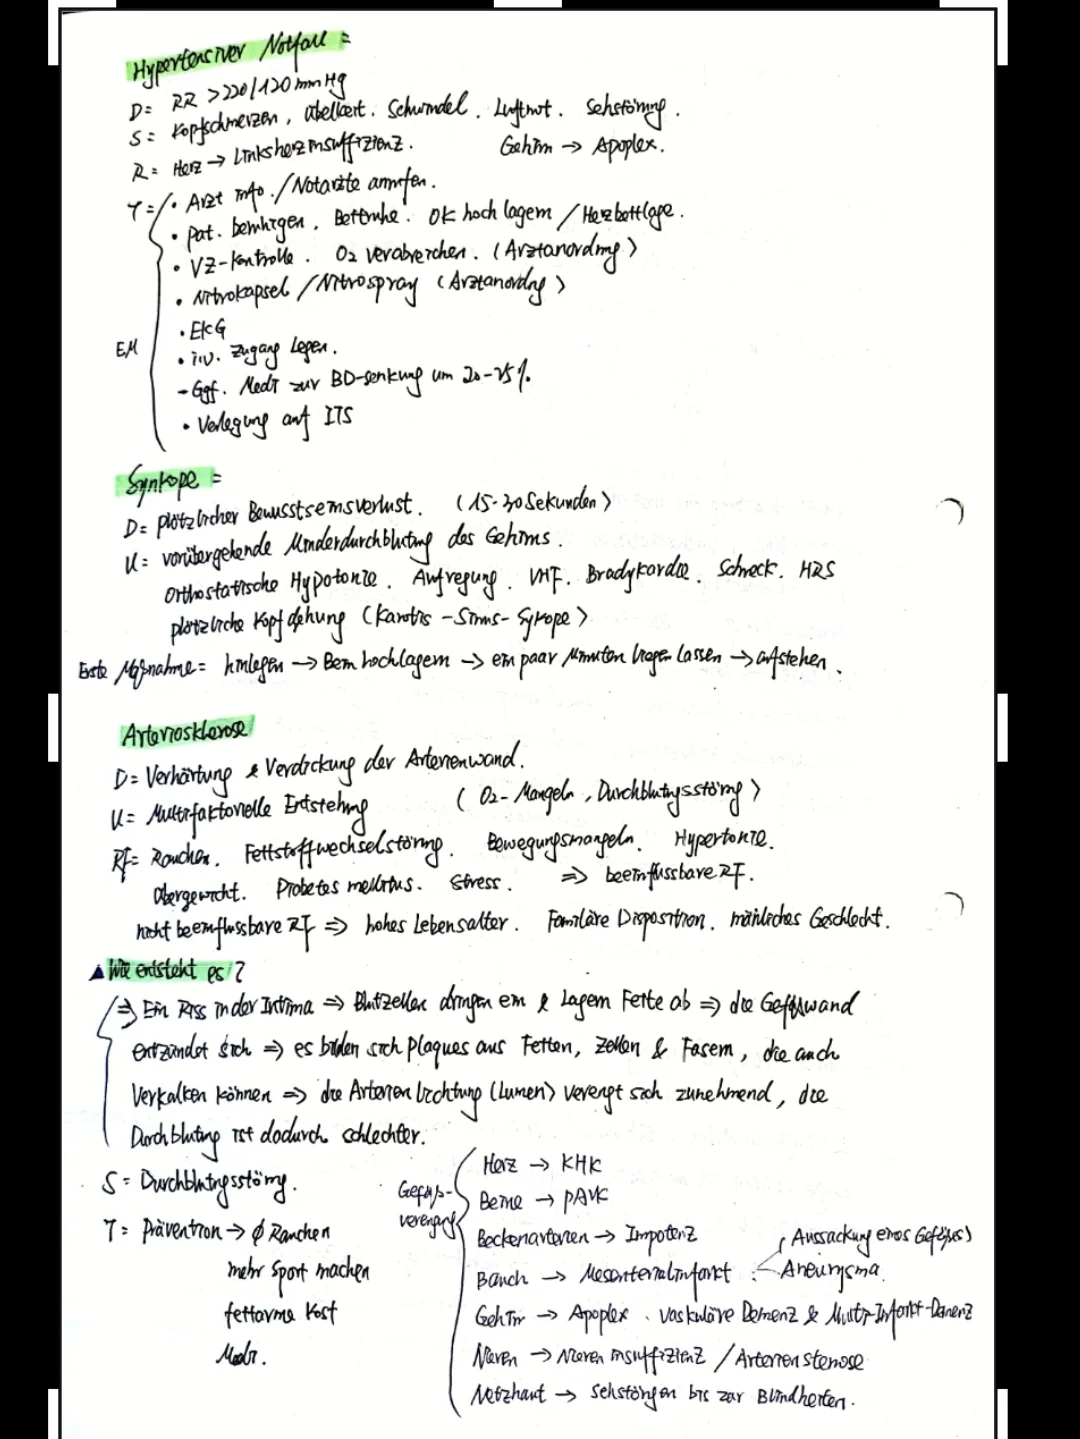 Hypertensiver Notfall =
D= RR >220/120 mmHg
S= Kopfschmerzen, Übelkeit. Schwindel. Luftnot. Sehstörung.
R= Herz → Linksherzinsuffizienz. Gehirn → Apoplex.
T= • Arzt info. / Notärzte anrufen.
• Pat. beruhigen, Bettruhe. OK hochlagern / Herzbettlage.
• VZ-Kontrolle. O2 verabreichen. (Arztanordnung)
• Nitrokapsel / Nitrospray (Arztanordng)
• EKG
EM
• i.v. Zugang legen.
- Ggf. Medi zur BD-senkung um 20-25%.
• Verlegung auf ITS
Synkope =
D= plötzlicher Bewusstseinsverlust. (15-30 Sekunden)
U= vorübergehende Minderdurchblutung des Gehirns.
Orthostatische Hypotonie. Aufregung. VHF. Bradykardie. Schreck. HRS
plötzliche Kopfdehung (Karotis-Sinus-Sykope)
Erste Maßnahme= hinlegen → Bein hochlagern → ein paar Minuten liegen lassen → aufstehen.
Arteriosklerose
D= Verhärtung & Verdickung der Arterienwand.
U= Multifaktorielle Entstehung (O2-Mangeln, Durchblutungsstörng)
RF= Rauchen. Fettstoffwechselstörung. Bewegungsmangeln. Hypertonie.
Übergewicht. Diabetes mellitus. Stress. => beeinflussbare RF.
nicht beeinflussbare RF => hohes Lebensalter. Familiäre Disposition. männliches Geschlecht.
▲ Wie entsteht es?
=> Ein Riss in der Intima => Blutzellen dringen ein & lagern Fette ab => die Gefäßwand
entzündet sich => es bilden sich Plaques aus Fetten, Zellen & Fasern, die auch
Verkalken können => die Arterien Lichtung (Lumen) verengt sich zunehmend, die
Durchblutung ist dadurch schlechter.
S= Durchblutungsstörng.
T= Prävention → ∅ Rauchen
mehr Sport machen
fettarme Kost
Medi.
Gefäß-
verengung
Herz → KHK
Beine → pAVK
Beckenarterien → Impotenz
Bauch → Mesenterialinfarkt Aneurysma. (Aussackung eines Gefäßes)
Gehirn → Apoplex. vaskuläre Demenz & Multi-Infarkt-Demenz
Nieren → Niereninsuffizienz / Arterienstenose
Netzhaut → Sehstöngen bis zur Blindheiten.